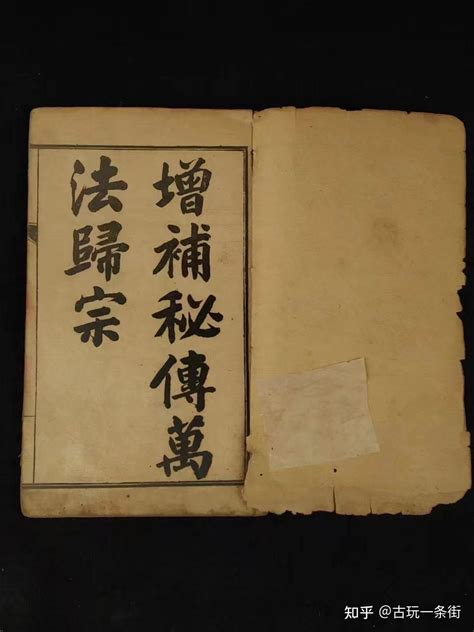 增補秘傳萬
法歸宗
知乎 @古玩一条街